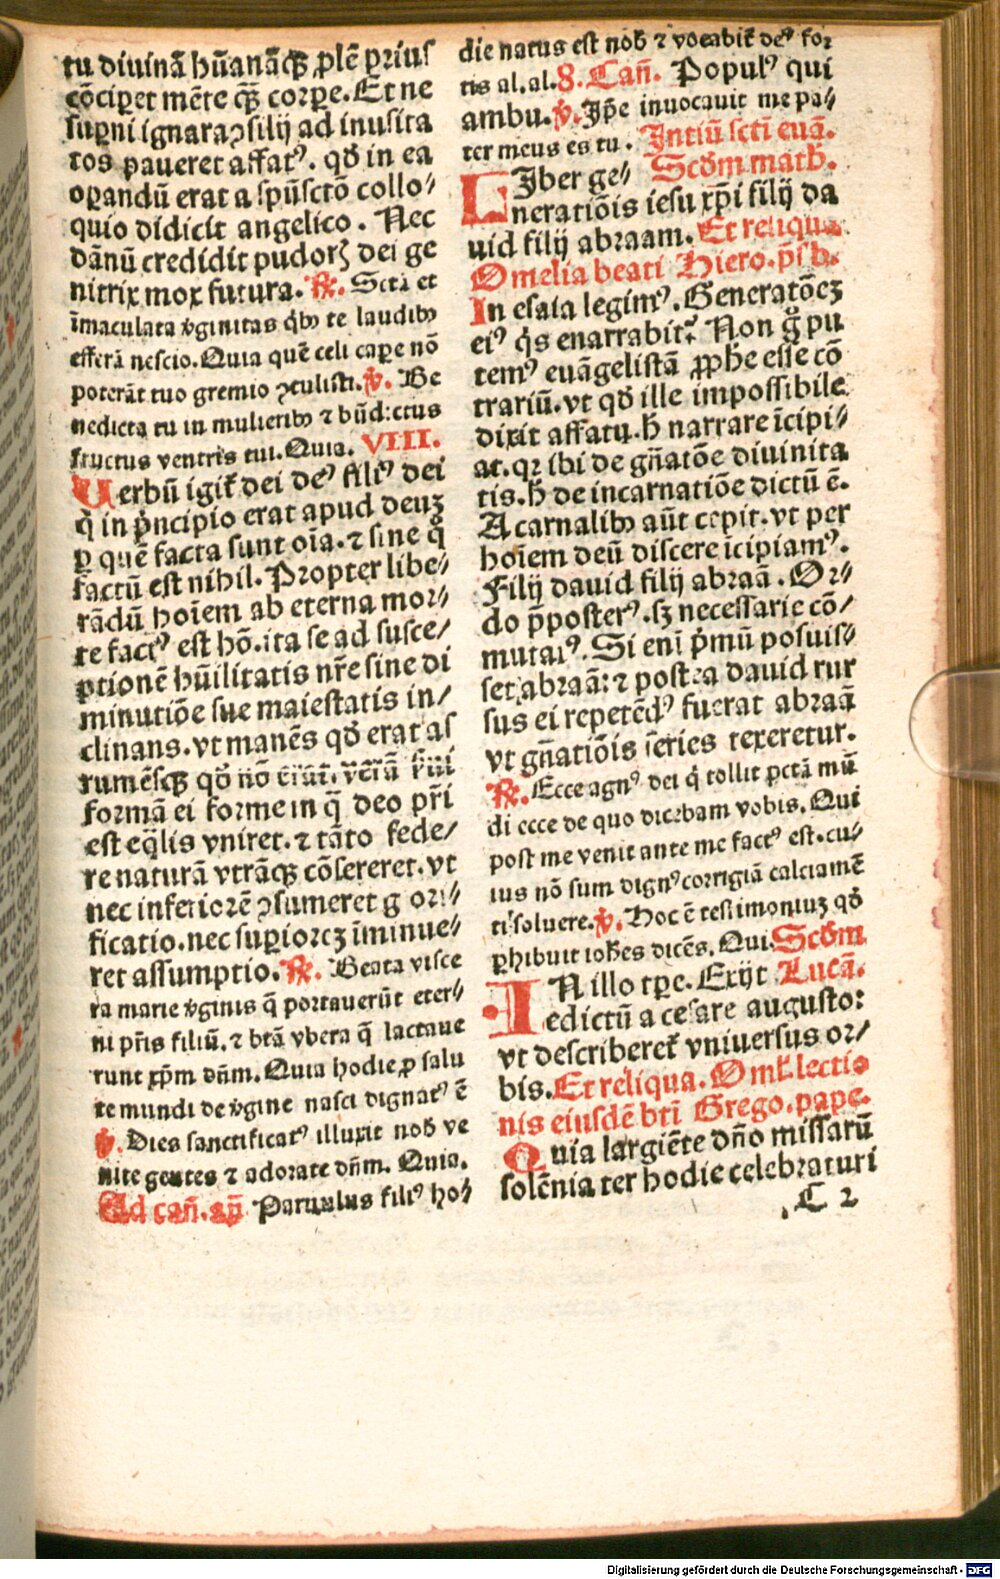 tu diuinã hũanãqꝫ ꝓlẽ prius
cõciꝑet mẽte qꝫ̃ corꝑe. Et ne
suꝑni ignara ↄsilij ad inusita
tos paueret affatꝰ. qđ in ea
oꝑandũ erat a spũsctõ collo⸗
quio didicit angelico. Nec
dãnũ credidit pudorꝫ dei ge
nitrix mox futura. ℟. Sctã et
ĩmaculata v̾ginitas qͥbꝰ te laudibꝰ
efferã nescio. Quia quẽ celi caꝑe nõ
poterãt tuo gremio ↄtulisti. ℣. Be
nedicta tu in mulieribꝰ ⁊ bñdictus
fructus ventris tui. Quia. VIII.
Uerbũ igit̃ dei deꝰ filiꝰ dei
qͥ in pͥncipio erat apud deuꝫ
ꝑ quẽ facta sunt oĩa. ⁊ sine qͦ
factũ est nihil. Propter libe⸗
rãdũ hoĩem ab eterna mor⸗
te factꝰ est hõ. ita se ad susce⸗
ptionẽ hũilitatis nr̃e sine di
minutiõe sue maiestatis in⸗
clinans. vt manẽs qđ erat as
sumẽsqꝫ qđ nõ erat. verã
formã ei forme in q̃ deo pr̃i
est eq̃lis vniret. ⁊ tãto fede⸗
re naturã vtrãqꝫ cõsereret. vt
nec inferiorẽ ↄsumeret gͦori⸗
ficatio. nec suꝑioreꝫ ĩminue⸗
ret assumptio. ℟. Beata visce
ra marie v̾ginis q̃ portauerũt eter⸗
ni pr̃is filiũ. ⁊ btã vbera q̃ lactaue
runt xp̃m dñm. Quia hodie ꝓ salu
te mundi de v̾gine nasci dignatꝰ ẽ
℣. Dies sanctificatꝰ illuxit nob̃ ve
nite gentes ⁊ adorate dñm. Quia.
Ad cañ. añ Paruulus filiꝰ ho⸗
die natus est nob̃ ⁊ vocabit̃ deꝰ for
tis al. al. 8. Cañ. Populꝰ qui
ambu. ℣. Ip̃e inuocauit me pa⸗
ter meus es tu. Intiũ scti euã.
Scđm math.
LIber ge⸗
neratiõis iesu xp̃i filij da
uid filij abraam. Et reliqua
Omelia beati Hiero. p̃sb.
In esaia legimꝰ. Generatõeꝫ
eiꝰ qͥs enarrabit? Non gͦ pu
temꝰ euãgelistã ꝓph̃e esse cõ
trariũ. vt qđ ille impossibile
dixit affatu. h̃ narrare ĩcipi⸗
at. qꝛ ibi de gñatõe diuinita
tis. h̃ de incarnatiõe dictũ ẽ.
A carnalibꝰ aũt cepit. vt per
hoĩem deũ discere ĩcipiamꝰ.
Filij dauid filij abraã. Or⸗
do p̃posterꝰ. sꝫ necessarie cõ⸗
mutatꝰ. Si eni pͥmũ posuis⸗
set abraã: ⁊ postea dauid rur
sus ei repetẽdꝰ fuerat abraã
vt gñatiõis series texeretur.
℟. Ecce agnꝰ dei qͥ tollit pctã mũ
di ecce de quo dicebam vobis. Qui
post me venit ante me factꝰ est. cu⸗
ius nõ sum dignꝰ corrigiã calciamẽ
ti soluere. ℣. Hoc ẽ testimoniuꝫ qđ
ꝑhibuit ioh̃es dicẽs. Qui. Scđm
IN illo tꝑe. Exijt Lucã.
edictũ a cesare augusto:
vt describeret̃ vniuersus or⸗
bis. Et reliqua. Oml̃. lectio
nis eiusdẽ bti Grego. pape.
Quia largiẽte dño missarũ
solẽnia ter hodie celebraturi
C 2
Digitalisierung gefördert durch die Deutsche Forschungsgemeinschaft - DFG